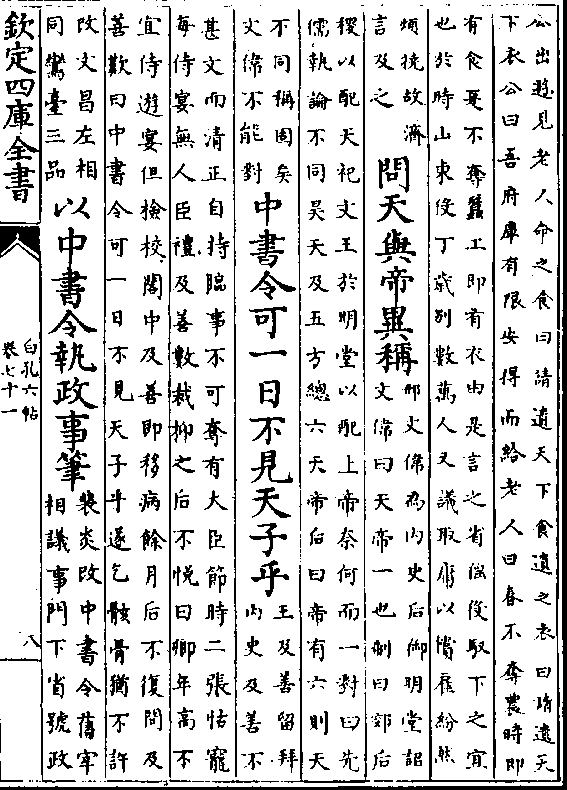 公出遊見老人命之食曰請遺天下食遺之衣曰請遺天
下衣公曰吾府庫有限安得而給老人曰春不奪農時即
有食夏不奪蠶工即有衣由是言之省徭役馭下之宜
也於時山東役丁歲别數萬人又議取庸以償雇紛然
煩擾故濟
言及之
問天與帝異稱
邢文偉為内史后御明堂詔
文偉曰天帝一也制曰郊后
稷以配天祀文王於明堂以配上帝奈何而一對曰先
儒執論不同昊天及五方總六天帝后曰帝有六則天
不同稱固矣
文偉不能對
中書令可一日不見天子乎
王及善留拜
内史及善不
甚文而清正自持臨事不可奪有大臣節時二張怙寵
每侍宴無人臣禮及善數裁抑之后不悦曰卿年高不
宜侍遊宴但檢校閣中及善即移病餘月后不復問及
善歎曰中書令可一日不見天子乎遂乞骸骨猶不許
改文昌左相
同鸞臺三品
以中書令執政事筆
裴炎改中書令舊宰
相議事門下省號政
欽定四庫全書
白孔六帖
卷七十一
八